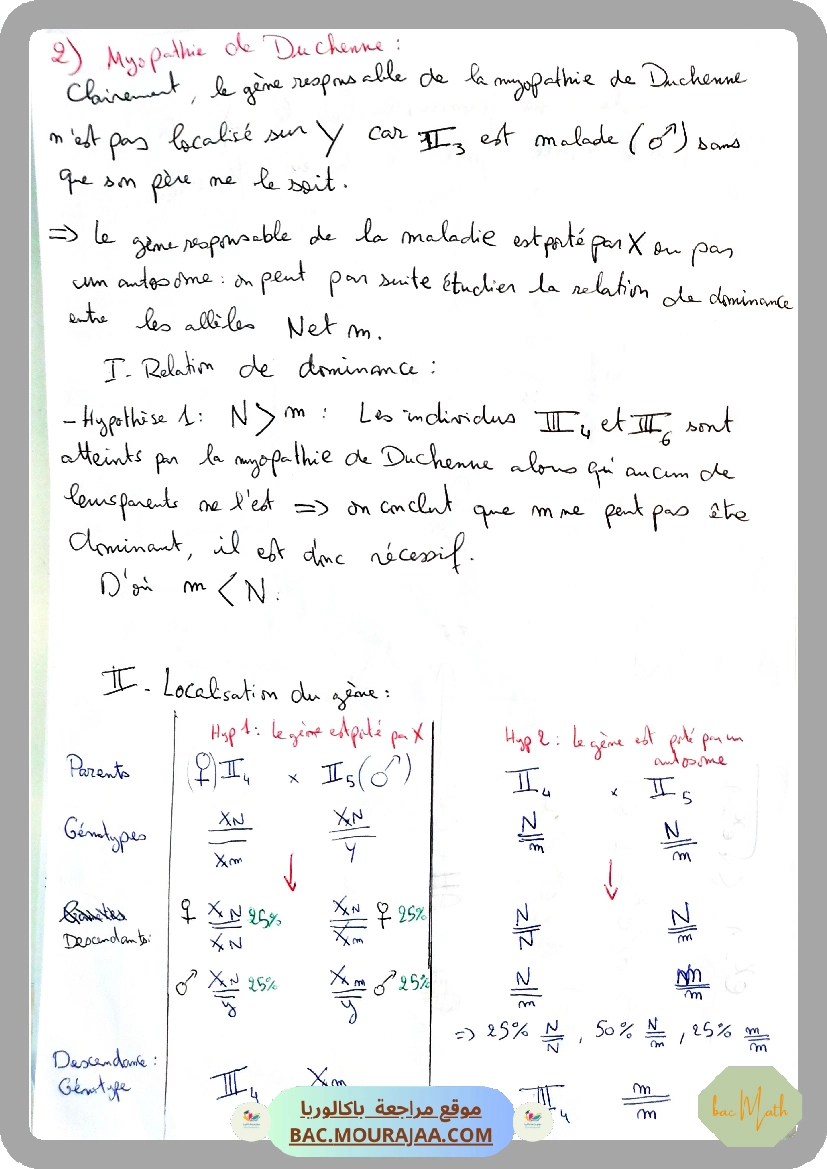 2) Myopathie de Duchenne :
Clairement, le gène responsable de la myopathie de Duchenne
n'est pas localisé sur Y car II3 est malade (♂) sans
que son père ne le soit.
=> le gène responsable de la maladie est porté par X ou par
un autosome : on peut par suite étudier la relation de dominance
entre les allèles N et m.
I- Relation de dominance :
- Hypothèse 1 : N > m : Les individus III4 et III6 sont
atteints par la myopathie de Duchenne alors qu'aucun de
leurs parents ne l'est => on conclut que m ne peut pas être
dominant, il est donc récessif.
D'où m < N.
II- Localisation du gène :
Hyp 1 : le gène est porté par X
Hyp 2 : le gène est porté par un
autosome
Parents (♀) II4 x II5 (♂) II4 x II5
Génotypes XN/Xm XN/Y N/m N/m
Descendants : ♀ XN/XN 25% XN/Xm ♀ 25% N/N N/m
♂ XN/Y 25% Xm/Y ♂ 25% N/m m/m
=> 25% N/N, 50% N/m, 25% m/m
Descendance :
Génotype III4 Xm III4 m/m
موقع مراجعة باكالوريا
BAC.MOURAJAA.COM
bac Math